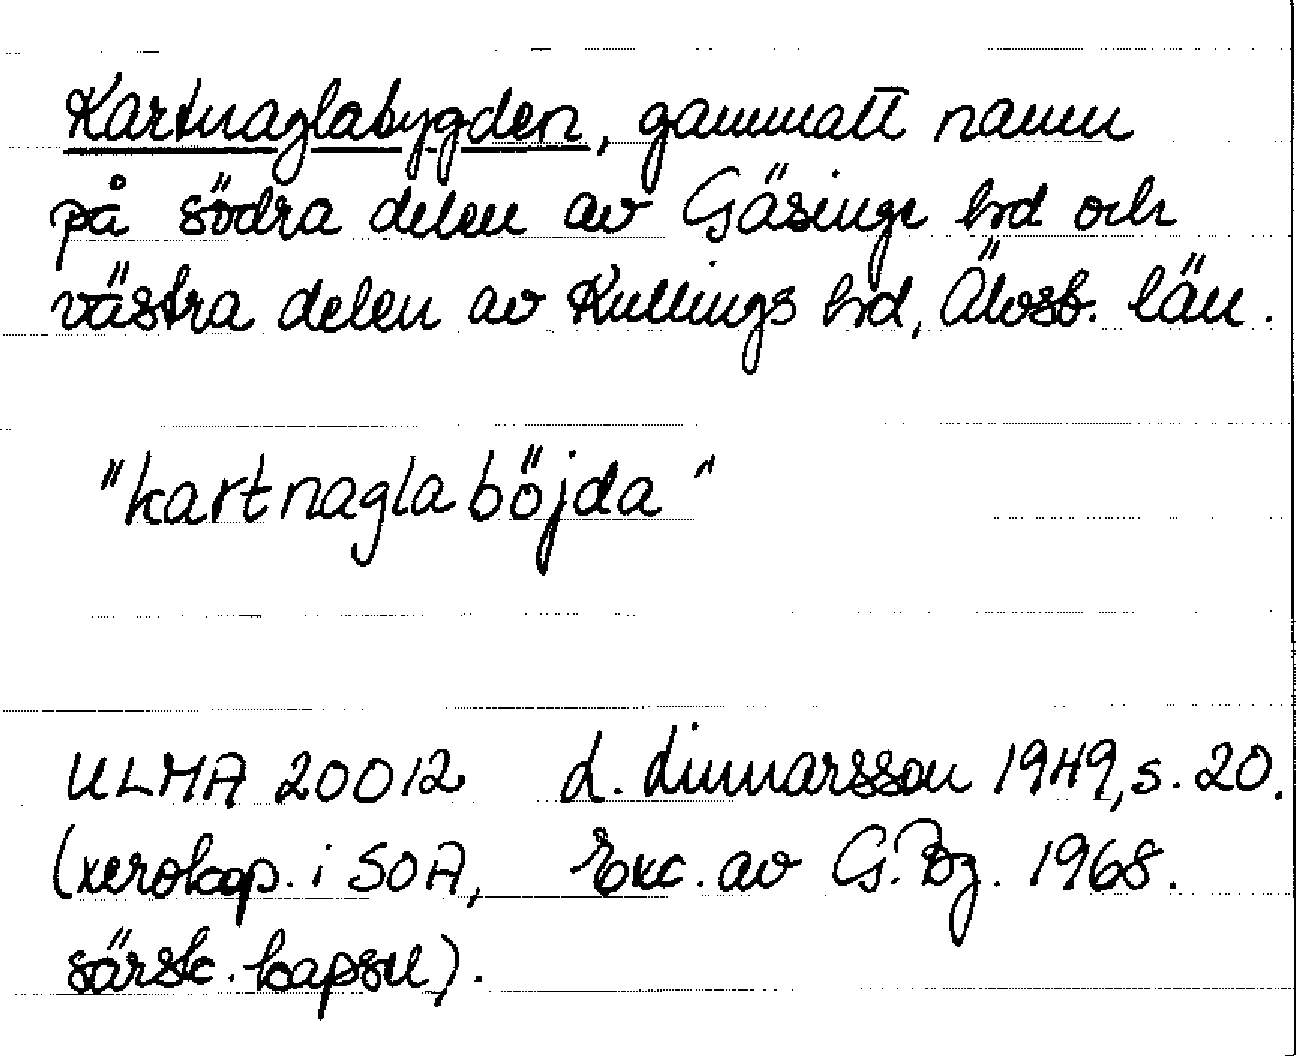 Kartnaglabygden, gammalt namn
på södra delen av Gäsenge hrd och
västra delen av Kullings hrd, Älvsb. län.
"kartnaglaböjda"
ULMA 20012 L. Linnarsson 1949, s. 20.
(xerokop. i SOA, Exc. av G. Bg. 1968.
särsk. kapsel).